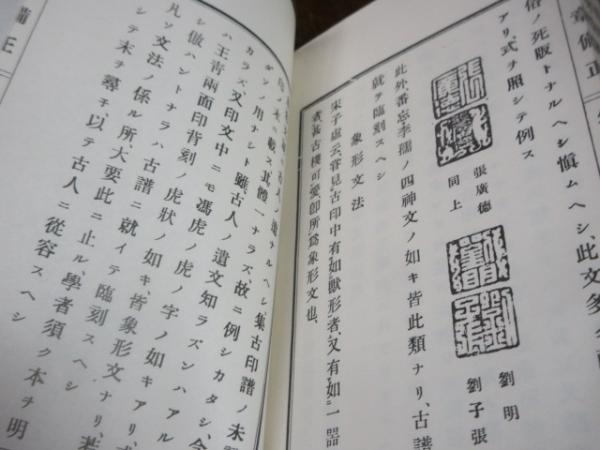 章備正
俗ノ死版トナルヘシ愼ムヘシ、此文多
アリ、式ヲ照シテ例ス
張廣德
同上
劉明
劉子張
此外、番忘李孺ノ四神文ノ如キ皆此類ナリ、古譜
就テ臨刻スヘシ
象形文法
宋子虛云嘗見古印中有如獸形者、又有如一器
者、甚古樸可愛、卽所爲象形文也、
ノ載ス其體一ナラズ故ニ例シカタシ、今
ノ用ナシト雖、古人ノ遺文知ラズンハアル
カラズ、又印文中ニモ馮虎ノ虎ノ字ノ如キアリ、
ハ王靑兩面印背刻ノ虎狀ノ如キ、皆象形文ナリ、若
シ倣ハントナラハ古譜ニ就イテ臨刻スヘシ
凡ソ文法ノ係ル所、大要此ニ止ル、學者須ク本ヲ明
シテ末ヲ尋チ、以テ古人ニ從容スヘシ
備正